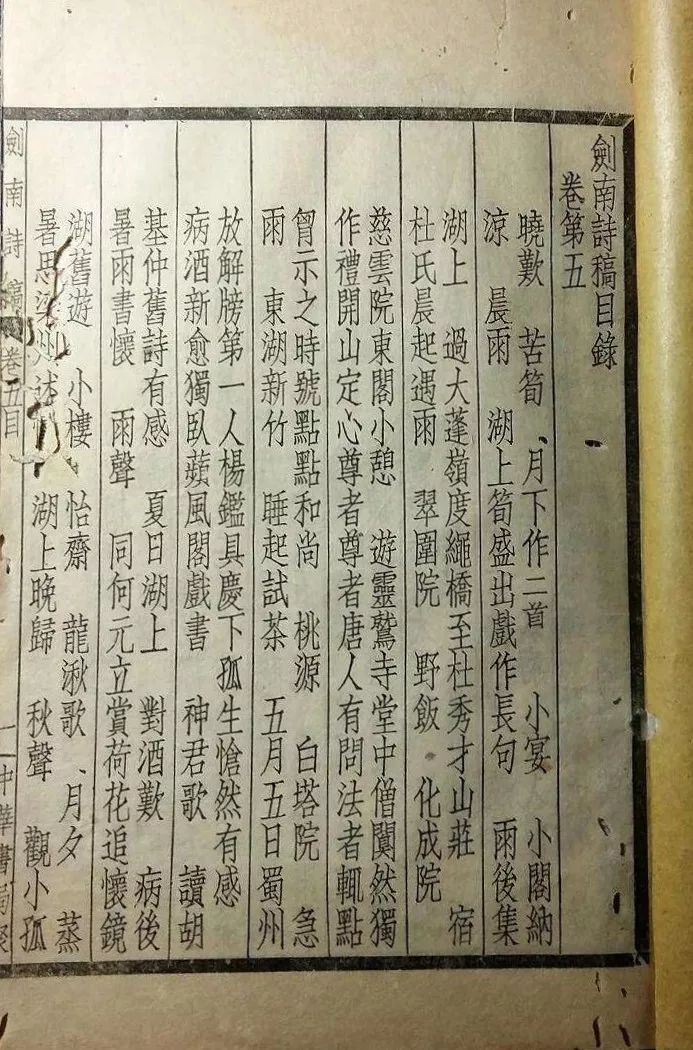 劍南詩稿目錄
卷第五
曉歎　苦筍　月下作二首　小宴　小閣納
涼　晨雨　湖上筍盛出戲作長句　雨後集
湖上　過大蓬嶺度繩橋至杜秀才山莊　宿
杜氏晨起遇雨　翠圍院　野飯　化成院
慈雲院東閣小憩　遊靈鷲寺堂中僧闃然獨
作禮開山定心尊者尊者唐人有問法者輒點
胷示之時號點點和尚　桃源　白塔院　急
雨　東湖新竹　睡起試茶　五月五日蜀州
放解牓第一人楊鑑具慶下孤生愴然有感
病酒新愈獨臥蘋風閣戲書　神君歌　讀胡
基仲舊詩有感　夏日湖上　對酒歎　病後
暑雨書懷　雨聲　同何元立賞荷花追懷鏡
湖舊遊　小樓　怡齋　龍湫歌　月夕　蒸
暑思梁州述　湖上晚歸　秋聲　觀小孤
劍南詩稿　卷五目　一　中華書局聚